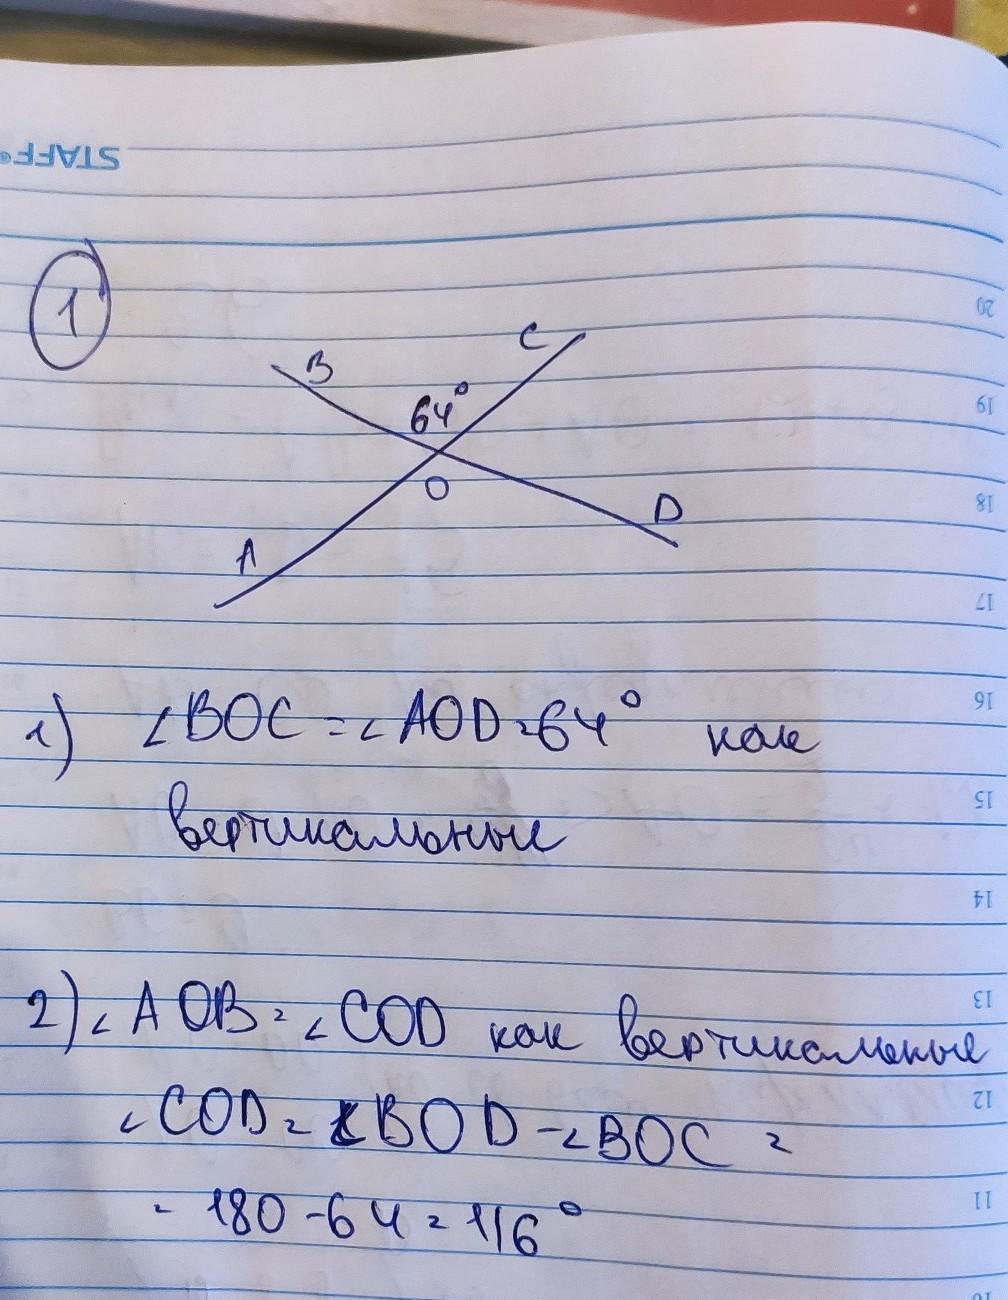 STAFF
1
B
C
64°
O
D
A
1) ∠BOC = ∠AOD = 64° как
вертикальные
2) ∠AOB = ∠COD как вертикальные
∠COD = ∠BOD - ∠BOC =
= 180 - 64 = 116°
20
19
18
17
16
15
14
13
12
11
10